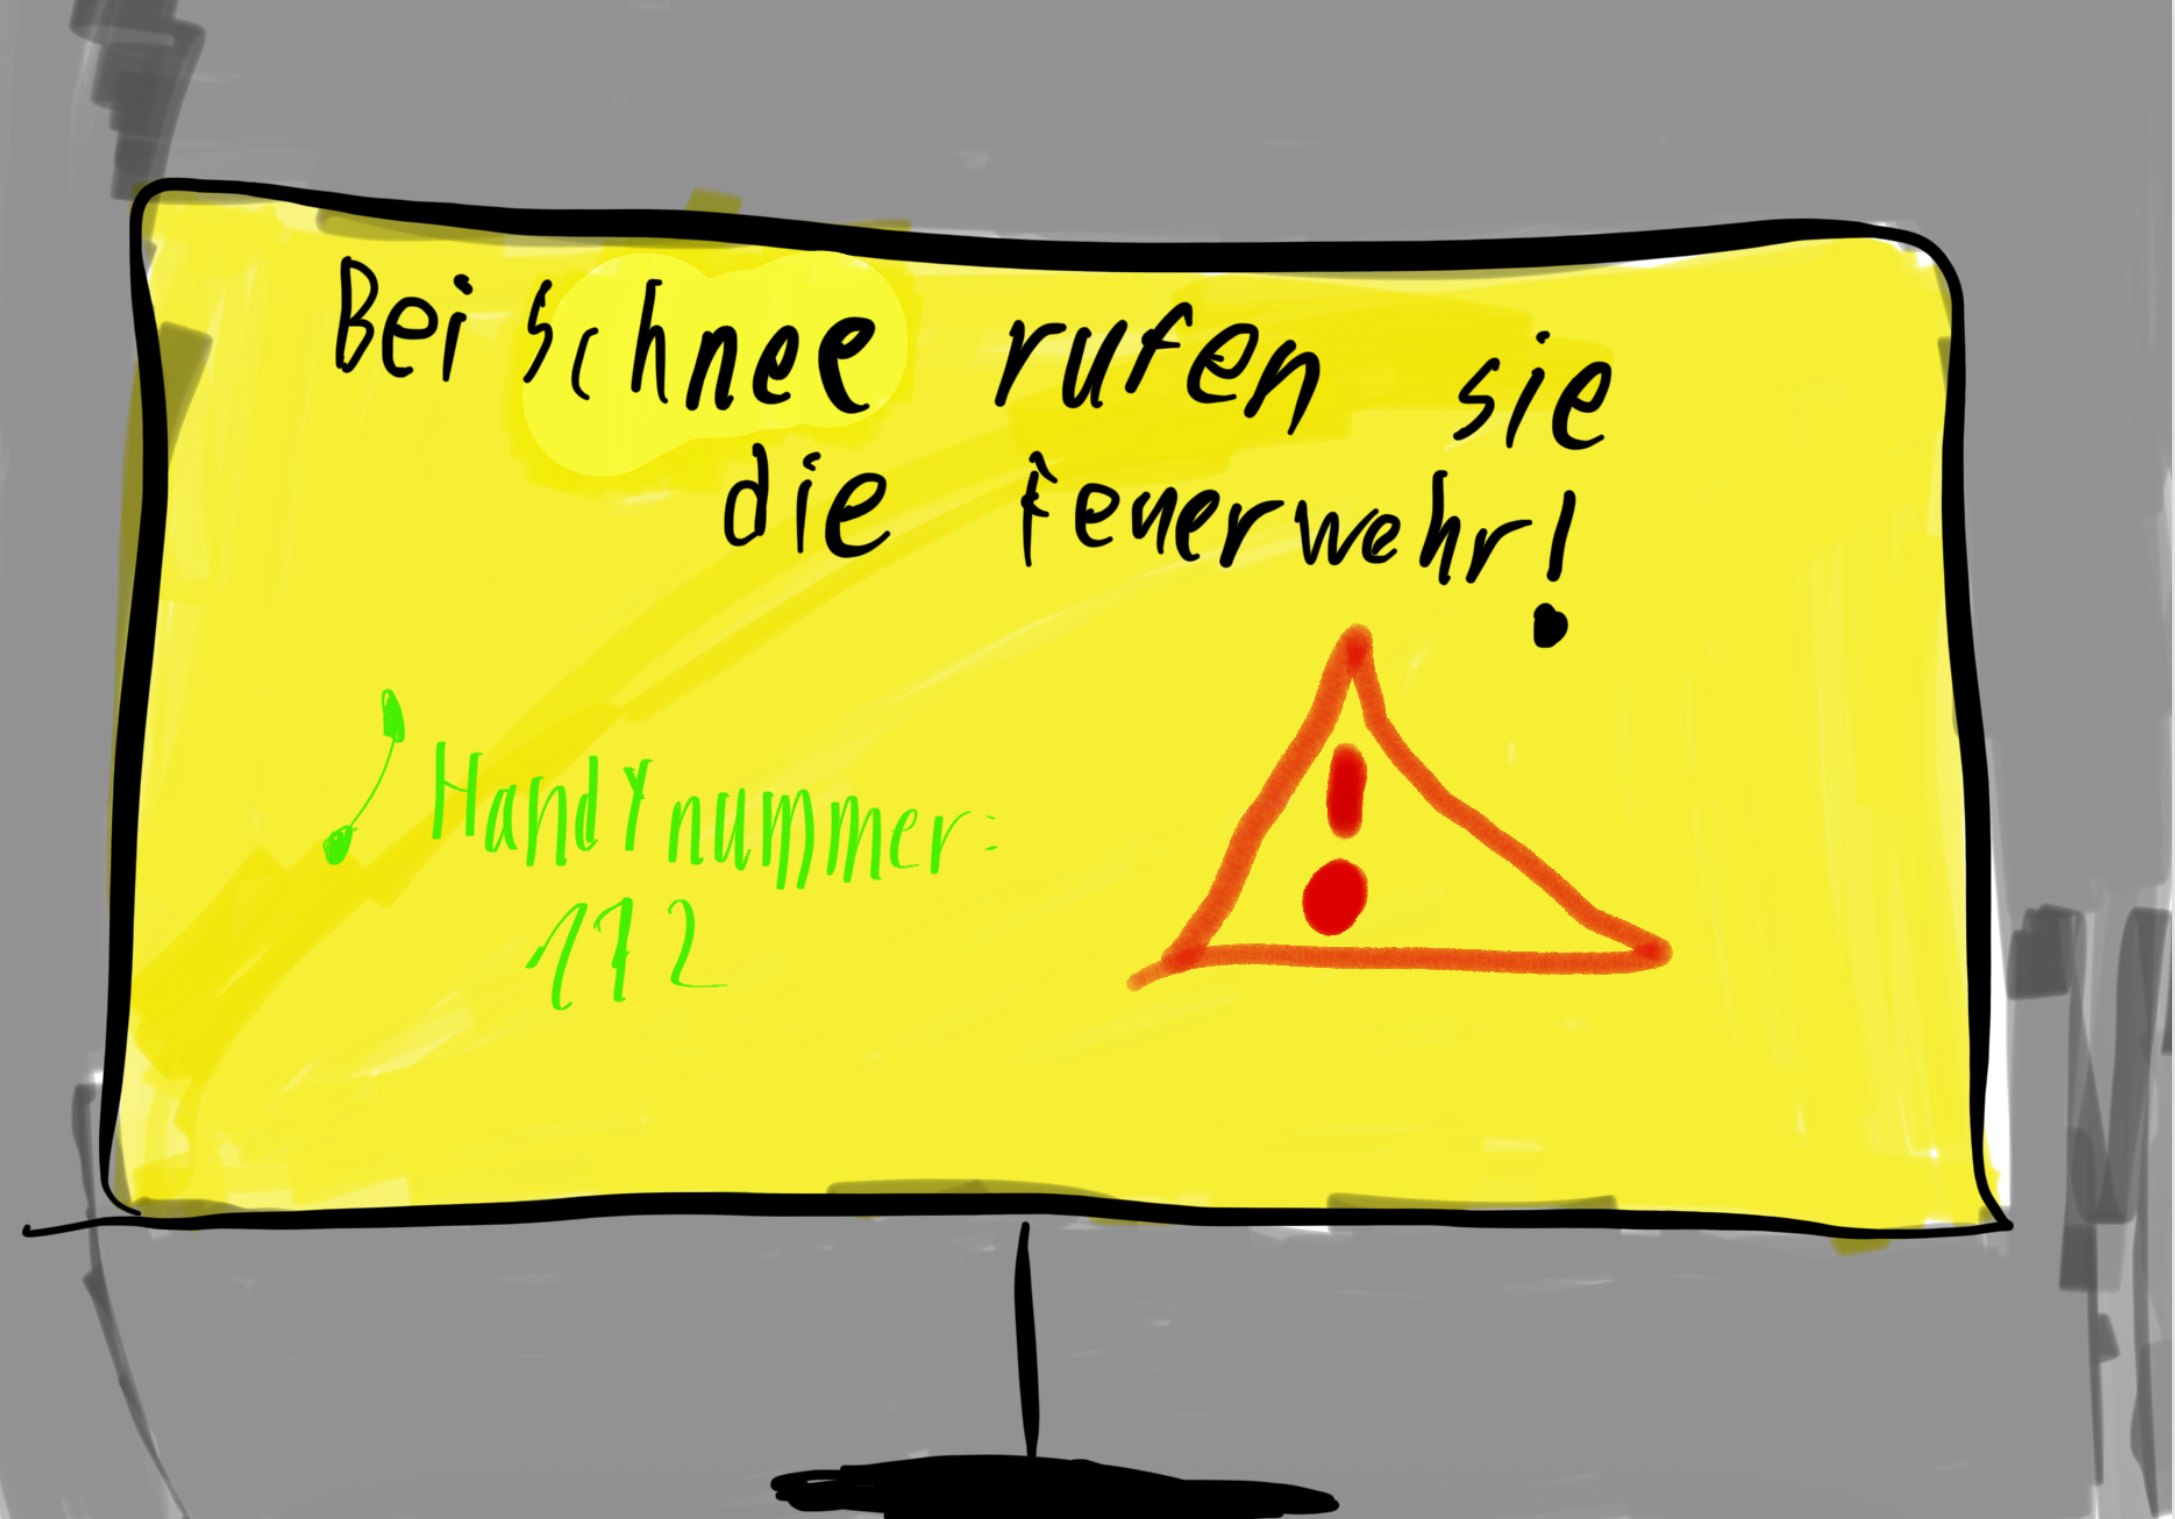 Bei Schnee rufen sie
die Feuerwehr!
Handynummer:
112